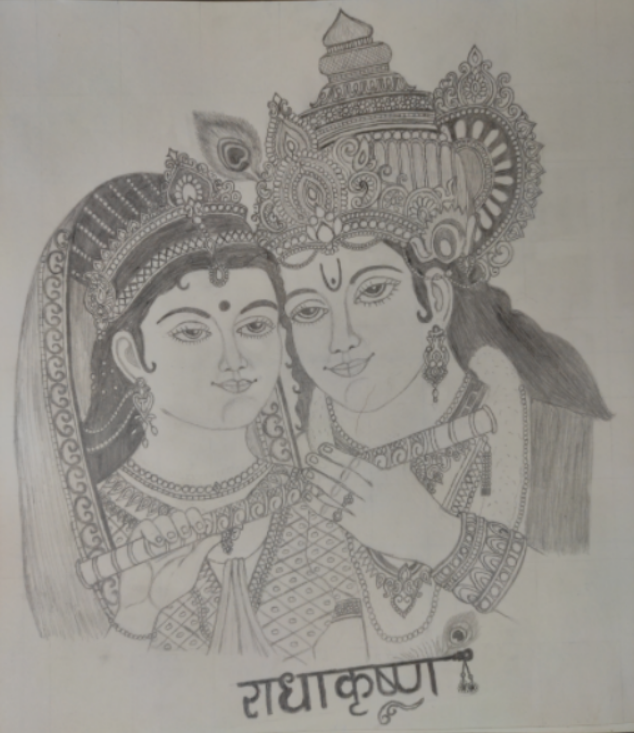 राधाकृष्ण